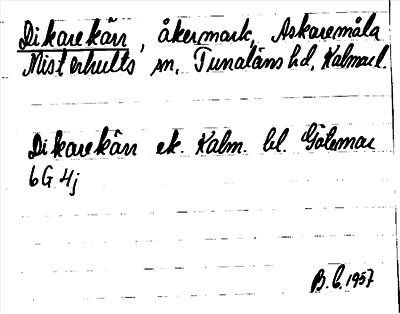 Dikarekärr, åkermark, Askaremåla
Misterhults sn, Tunaläns hd, Kalmar l.
Dikarekärr ek. Kalm. bl. Götemar
6G 4j
B.C. 1957